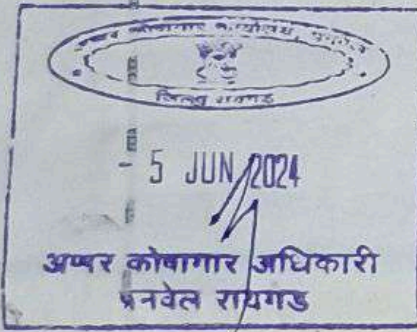 अप्पर कोषागार कार्यालय, पनवेल
जिल्हा रायगड
- 5 JUN 2024
अप्पर कोषागार अधिकारी
पनवेल रायगड